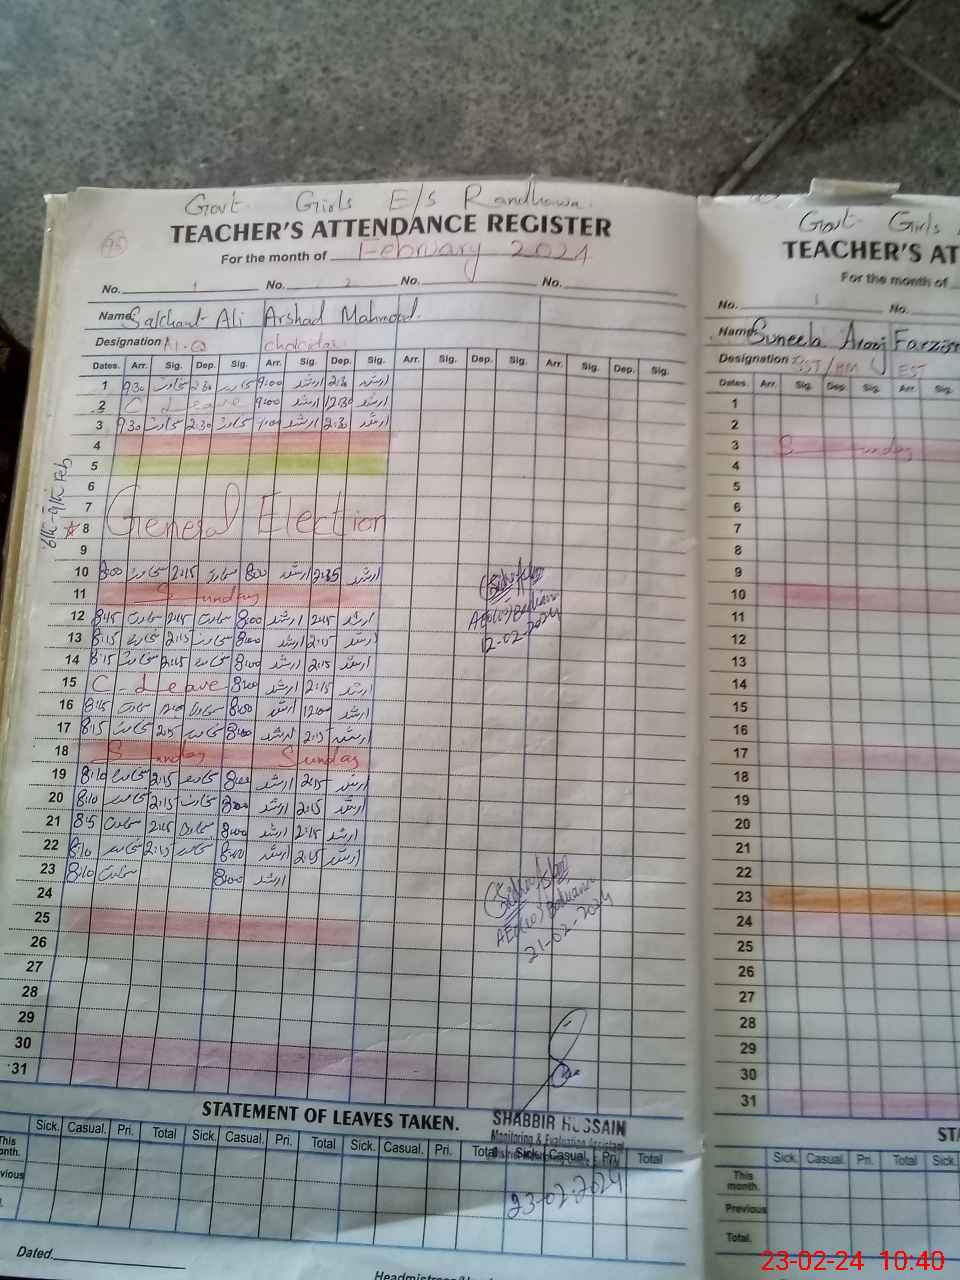 Govt. Girls E/S Randhawa.
TEACHER'S ATTENDANCE REGISTER
95
For the month of February 2024
No. 1 No. 2 No. No.
Name Sakhawat Ali Arshad Mahmood.
Designation N.Q Chokidar
Dates. Arr. Sig. Dep. Sig. Arr. Sig. Dep. Sig. Arr. Sig. Dep. Sig. Arr. Sig. Dep. Sig.
1 9:30 سخاوت 2:30 سخاوت 9:00 ارشد 2:30 ارشد
2 C Leave 9:00 ارشد 12:30 ارشد
3 9:30 سخاوت 2:30 سخاوت 9:00 ارشد 2:30 ارشد
4
5
6
7
6th - 9th Feb
General Election
8
9
10 8:00 سخاوت 2:15 سخاوت 8:00 ارشد ارشد
11 Sunday
12 8:45 سخاوت 2:45 سخاوت 8:00 ارشد 2:45 ارشد
13 8:15 سخاوت 2:15 سخاوت 8:00 ارشد 2:15 ارشد
14 8:15 سخاوت 2:15 سخاوت 8:00 ارشد 2:15 ارشد
15 C-Leave 8:00 ارشد 2:15 ارشد
16 8:15 سخاوت سخاوت 8:00 ارشد 12:00 ارشد
17 8:15 سخاوت 2:15 سخاوت 8:00 ارشد 2:15 ارشد
18 Sunday Sunday
19 8:10 سخاوت 2:15 سخاوت 8:00 ارشد 2:15 ارشد
20 8:10 سخاوت 2:15 سخاوت 8:00 ارشد 2:15 ارشد
21 8:5 سخاوت 2:15 سخاوت 8:00 ارشد 2:15 ارشد
22 8:10 سخاوت 2:15 سخاوت 8:00 ارشد 2:15 ارشد
23 8:10 سخاوت 8:00 ارشد
24
25
26
27
28
29
30
31
12-02-2024
21-02-2024
STATEMENT OF LEAVES TAKEN.
SHABBIR HUSSAIN
Monitoring & Evaluation Assistant
Sick. Casual. Pri. Total Sick. Casual. Pri. Total Sick. Casual. Pri. Total Sick. Casual. Pri. Total
This
onth.
vious
23-02-2024
Dated.
Headmistress/
Govt. Girls
TEACHER'S AT
For the month of
No. 1 No.
Name Suneela
Designation SST/HM EST
Dates. Arr. Sig. Dep. Sig. Arr. Sig.
1
2
3 Sunday
4
5
6
7
8
9
10
11
12
13
14
15
16
17
18
19
20
21
22
23
24
25
26
27
28
29
30
31
STA
Sick. Casual. Pri. Total Sick.
This
month.
Previous
Total.
23-02-24 10:40